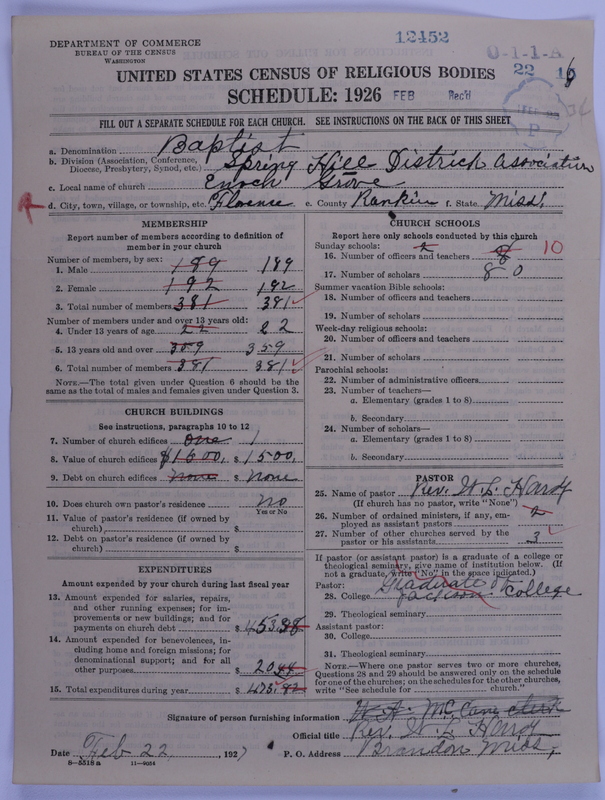 12452
DEPARTMENT OF COMMERCE
BUREAU OF THE CENSUS
WASHINGTON
0-1-1-A
22 16
UNITED STATES CENSUS OF RELIGIOUS BODIES
SCHEDULE: 1926 FEB Rec'd
P
FILL OUT A SEPARATE SCHEDULE FOR EACH CHURCH. SEE INSTRUCTIONS ON THE BACK OF THIS SHEET
a. Denomination Baptist
b. Division (Association, Conference, Diocese, Presbytery, Synod, etc.) Spring Hill District Association
c. Local name of church Enoch Grove
d. City, town, village, or township, etc. Florence e. County Rankin f. State Miss.
MEMBERSHIP
Report number of members according to definition of
member in your church
Number of members, by sex:
1. Male 189 189
2. Female 192 192
3. Total number of members 381 381
Number of members under and over 13 years old:
4. Under 13 years of age 22 22
5. 13 years old and over 359 359
6. Total number of members 381 381
NOTE.—The total given under Question 6 should be
the same as the total of males and females given under Question 3.
CHURCH BUILDINGS
See instructions, paragraphs 10 to 12
7. Number of church edifices one 1
8. Value of church edifices $1500. $ 1500.
9. Debt on church edifices none $ none
10. Does church own pastor's residence no
Yes or No
11. Value of pastor's residence (if owned by
church) $
12. Debt on pastor's residence (if owned by
church) $
EXPENDITURES
Amount expended by your church during last fiscal year
13. Amount expended for salaries, repairs,
and other running expenses; for im-
provements or new buildings; and for
payments on church debt $ 453.98
14. Amount expended for benevolences, in-
cluding home and foreign missions; for
denominational support; and for all
other purposes $ 20.44
15. Total expenditures during year $ 475.42
CHURCH SCHOOLS
Report here only schools conducted by this church
Sunday schools:
16. Number of officers and teachers 10
17. Number of scholars 80
Summer vacation Bible schools:
18. Number of officers and teachers
19. Number of scholars
Week-day religious schools:
20. Number of officers and teachers
21. Number of scholars
Parochial schools:
22. Number of administrative officers
23. Number of teachers—
a. Elementary (grades 1 to 8)
b. Secondary
24. Number of scholars—
a. Elementary (grades 1 to 8)
b. Secondary
PASTOR
25. Name of pastor Rev. W. L. Hardy
(If church has no pastor, write "None")
26. Number of ordained ministers, if any, em-
ployed as assistant pastors
27. Number of other churches served by the
pastor or his assistants 3
If pastor (or assistant pastor) is a graduate of a college or
theological seminary, give name of institution below. (If
not a graduate, write "No" in the space indicated.)
Pastor: Graduate of
28. College Jackson College
29. Theological seminary
Assistant pastor:
30. College
31. Theological seminary
NOTE.—Where one pastor serves two or more churches,
Questions 28 and 29 should be answered only on the schedule
for one of the churches; on the schedules for the other churches,
write "See schedule for church."
Signature of person furnishing information W. A. McCane clerk
Official title Rev. W. L. Hardy
Date Feb 22, 1927 P. O. Address Brandon Miss,
8—5518 a 11—9054